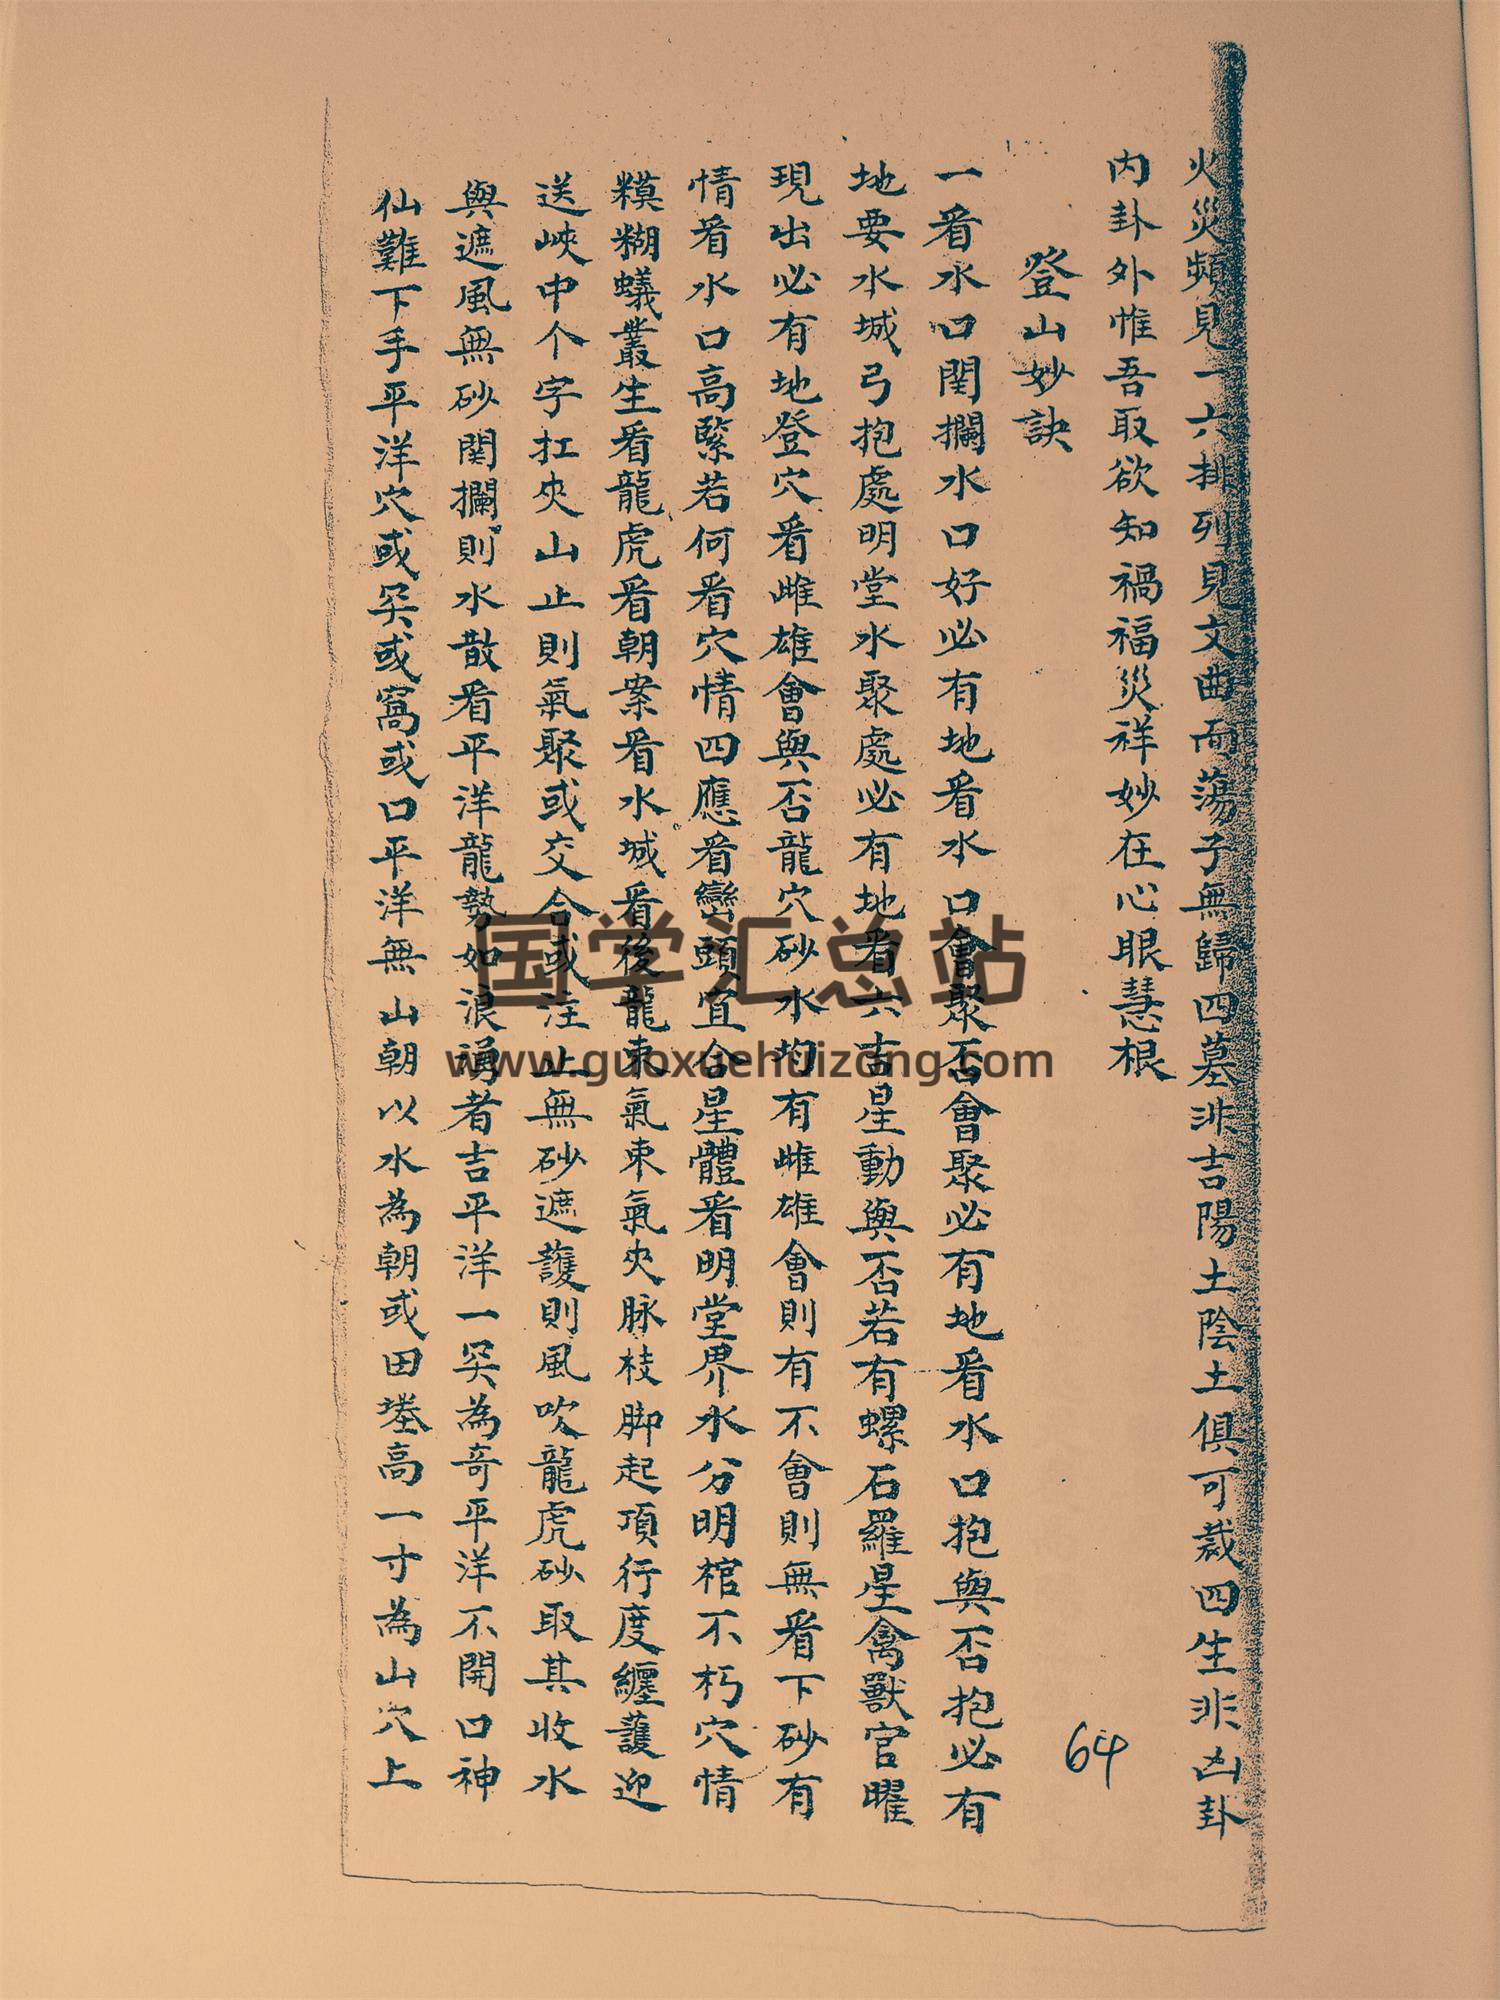 火災頻見一六排列見文曲而蕩子無歸四墓非吉陽土陰土俱可裁四生非凶卦
內卦外惟吾取欲知禍福災祥妙在心眼慧根
登山妙訣
一看水口関攔水口好必有地看水口會聚否會聚必有地看水口抱與否抱必有
地要水城弓抱處明堂水聚處必有地看六吉星動與否若有螺石羅星禽獸官曜
現出必有地登穴看雌雄會與否龍穴砂水均有雌雄會則有不會則無看下砂有
情看水口高緊若何看穴情四應看巒頭宜合星體看明堂界水分明棺不朽穴情
糢糊蟻叢生看龍虎看朝案看水城看後龍束氣束氣夾脉枝脚起項行度纏護迎
送峽中个字扛夾山止則氣聚或交合或注止無砂遮護則風吹龍虎砂取其收水
與遮風無砂関攔則水散看平洋龍勢如浪湧者吉平洋一突為奇平洋不開口神
仙難下手平洋穴或突或窩或口平洋無山朝以水為朝或田塍高一寸為山穴上
64
国学汇总站
www.guoxuehuizong.com